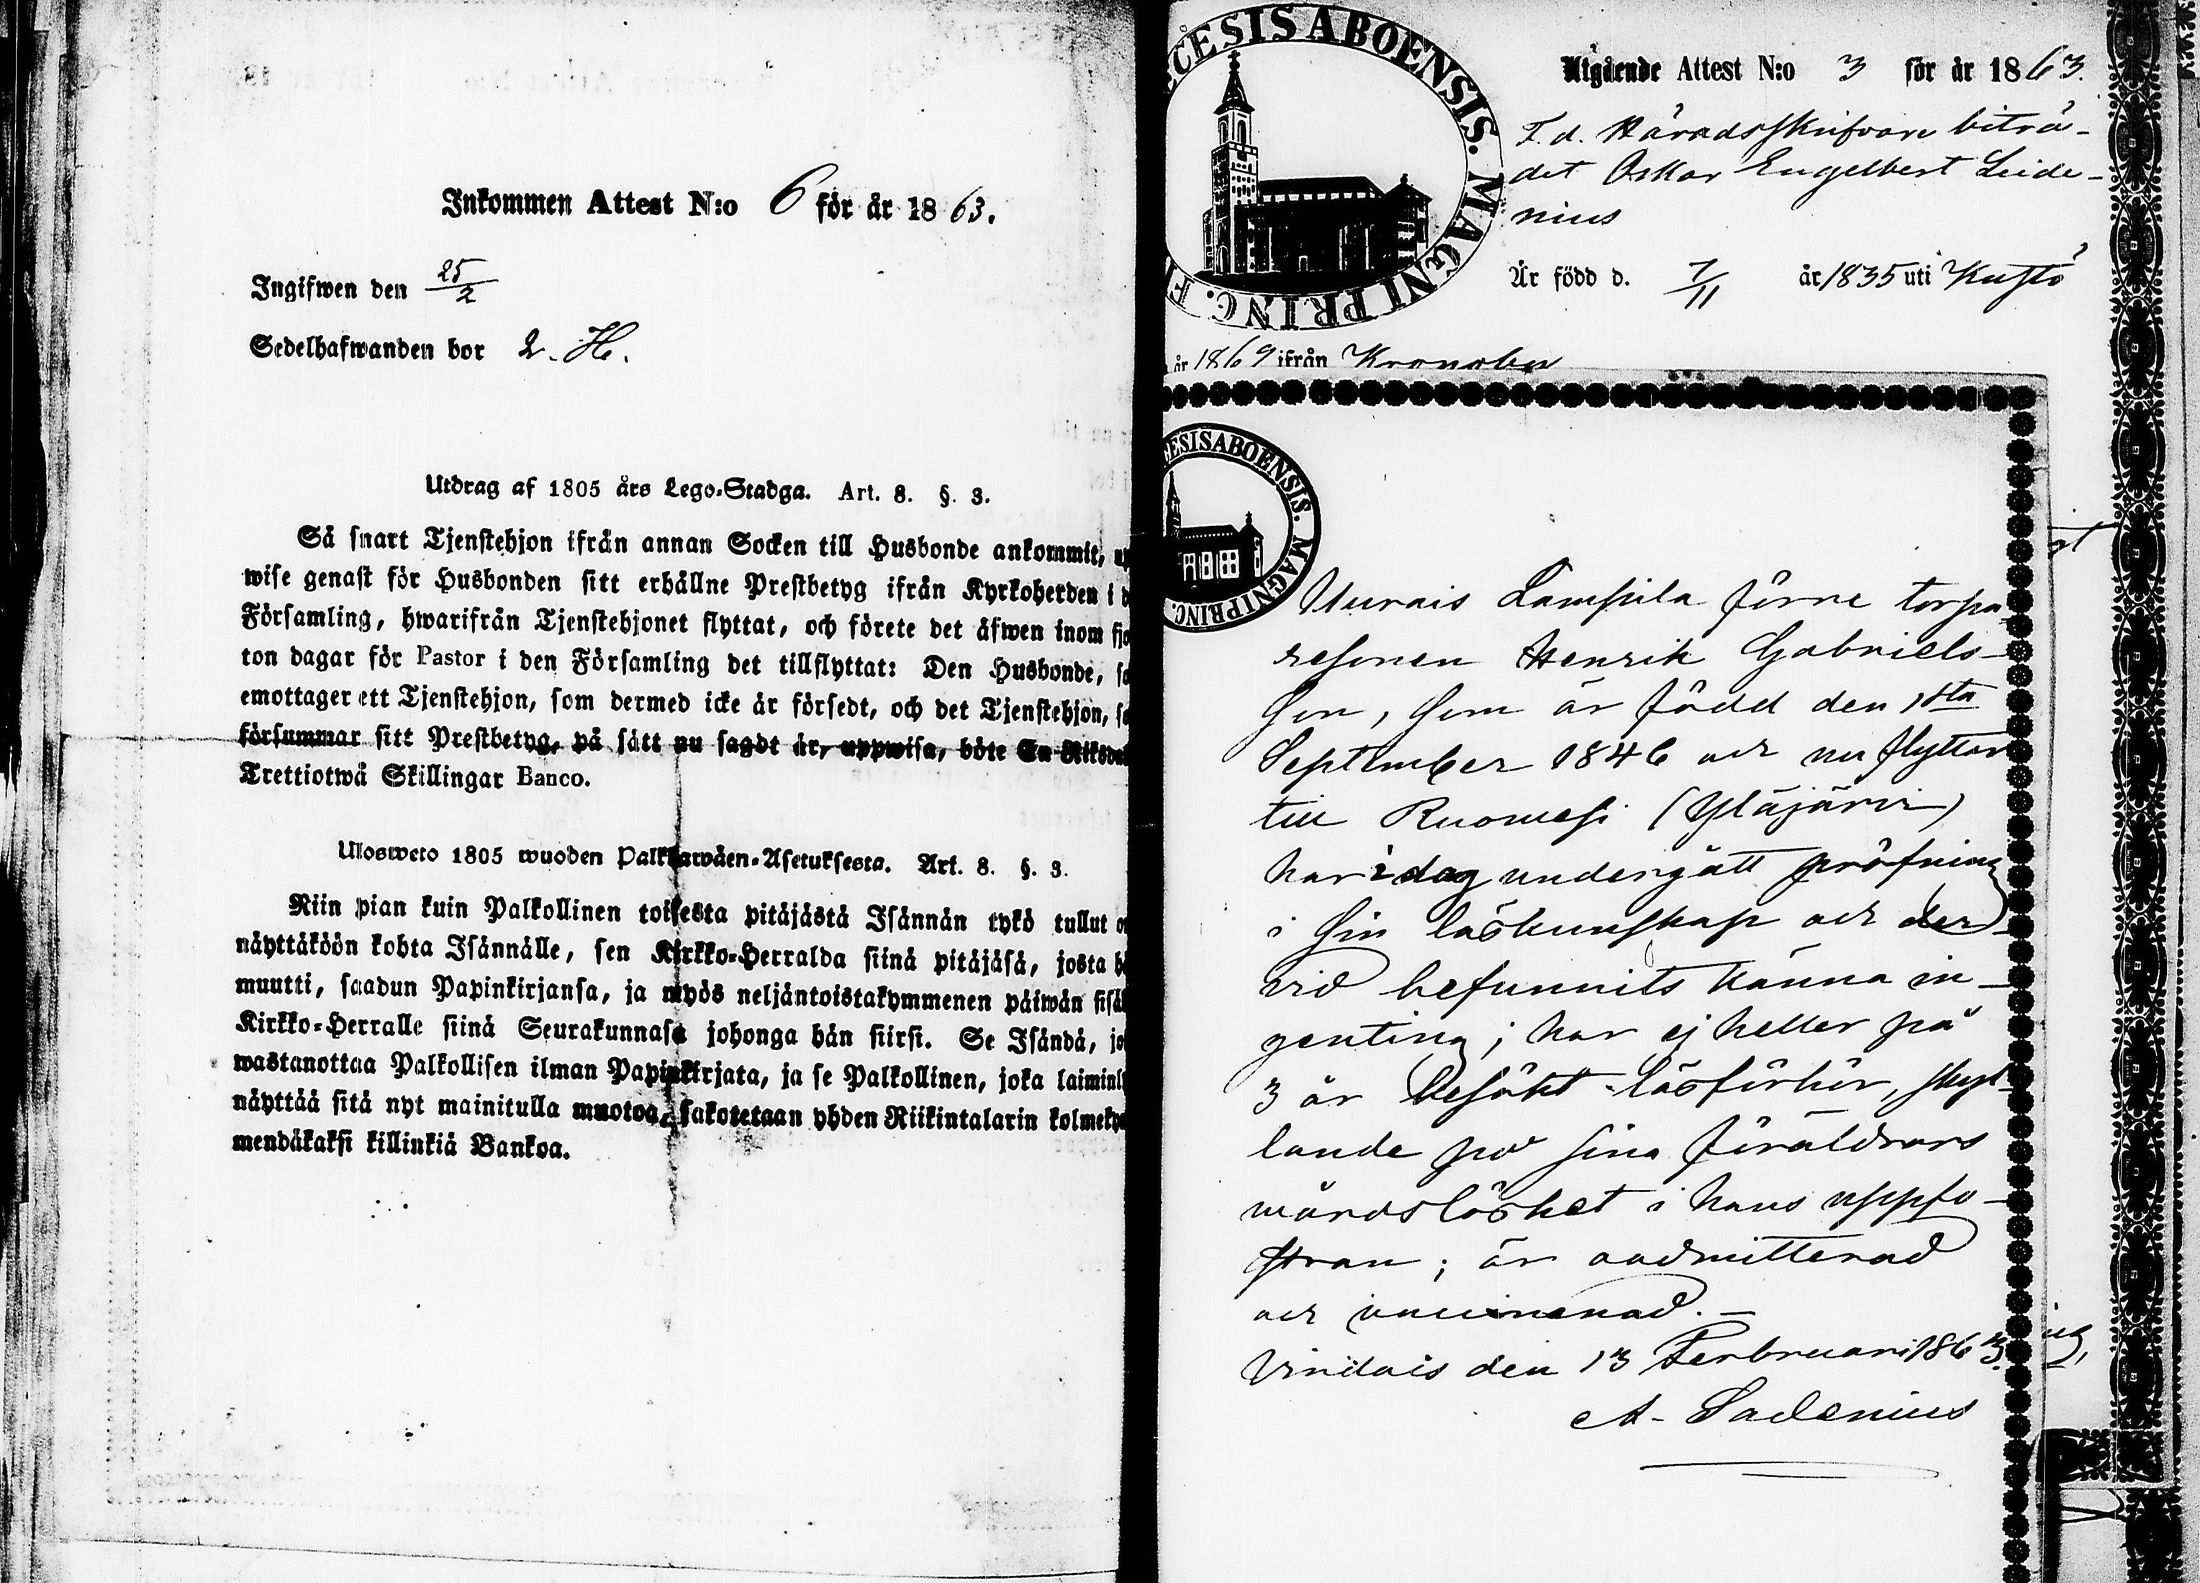 Inkommen Attest N:o 6 för år 1863.
Ingifwen den 25/2
Sedelhafwanden bor 2. H.
Utdrag af 1805 års Lego-Stadga. Art. 8. §. 3.
Så snart Tjenstehjon ifrån annan Socken till Husbonde ankommit,
wise genast för Husbonden sitt erhållne Prestbetyg ifrån Kyrkoherden i
Församling, hwarifrån Tjenstehjonet flyttat, och förete det äfwen inom
ton dagar för Pastor i den Församling det tillflyttat: Den Husbonde,
emottager ett Tjenstehjon, som dermed icke är försedt, och det Tjenstehjon,
försummar sitt Prestbetyg, på sätt nu sagdt är, uppwisa, böte En
Trettiotwå Skillingar Banco.
Ulosweto 1805 wuoden Palkkawäen-Asetuksesta. Art. 8. §. 3.
Niin pian kuin Palkollinen toisesta pitäjästä Isännän tykö tullut
näyttäköön kohta Isännälle, sen Kirkko-Herralda siinä pitäjäsä, josta
muutti, saadun Papinkirjansa, ja myös neljäntoistakymmenen päiwän
Kirkko-Herralle siinä Seurakunnasa johonga hän siirsi. Se Isändä,
wastanottaa Palkollisen ilman Papinkirjata, ja se Palkollinen, joka
näyttää sitä nyt mainitulla muotoa, sakotetaan yhden Riikintalarin
mendäkaksi killinkiä Bankoa.
CESIS ABOENSIS. MAGNI PRINC. F
Utgående Attest N:o 3 för år 1863.
F. d. Häradsskrifvare biträ-
det Oskar Engelbert Leide-
nius
Är född d. 7/11 år 1835 uti Kustö
år 1869 ifrån Kronoby
CESIS ABOENSIS. MAGNI PRINC.
Uurais Lampila förre torpa-
resonen Henrik Gabriels-
son, som är född den 18ta
September 1846 och nu flyttar
till Ruomesi (Yläjärvi)
har i dag undergått pröfning
i sin läskunskap och der-
vid befunnits känna in-
genting; har ej heller på
3 år besökt läsförhör, skyl-
lande på sina föräldrars
wårdslöshet i hans uppfo-
stran; är oadmitterad
och vaccinerad. —
Virdois den 13 Ferbruari 1863.
A. Sadenius